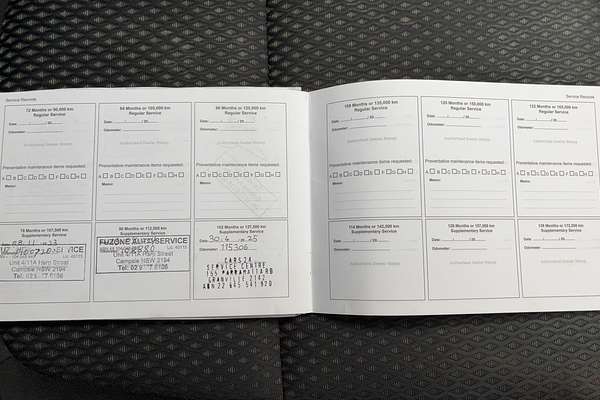 Service Records
72 Months or 90,000 km
Regular Service
Date
Odometer
Authorised Dealer Stamp
Preventative maintenance items requested:
A B C D E F G H
Memo:
84 Months or 105,000 km
Regular Service
Date
Odometer
Authorised Dealer Stamp
Preventative maintenance items requested:
A B C D E F G H
Memo:
96 Months or 120,000 km
Regular Service
Date
Odometer
Preventative maintenance items requested:
A B C D E F G H
Memo:
Supplementary Service
Unit 4/11A Harp Street
Campsie NSW 2194
90 Months or 112,500 km
Supplementary Service
FUZONE AUTO SERVICE
Unit 4/11A Harp Street
Campsie NSW 2194
102 Months or 127,500 km
Supplementary Service
Date 30.4 25
Odometer 115306
CARS24
SERVICE CENTRE
165 PARRAMATTA RD
GRANVILLE 2142
ABN 22 645 541 920
Service Records
108 Months or 135,000 km
Regular Service
Date
Odometer
Authorised Dealer Stamp
Preventative maintenance items requested:
A B C D E F G H
Memo:
120 Months or 150,000 km
Regular Service
Date
Odometer
Authorised Dealer Stamp
Preventative maintenance items requested:
A B C D E F G H
Memo:
132 Months or 165,000 km
Regular Service
Date
Odometer
Authorised Dealer Stamp
Preventative maintenance items requested:
A B C D E F G H
Memo:
114 Months or 142,500 km
Supplementary Service
Date
Odometer
Authorised Dealer Stamp
Supplementary Service
Date
Odometer
Authorised Dealer Stamp
Supplementary Service
Date
Odometer
Authorised Dealer Stamp